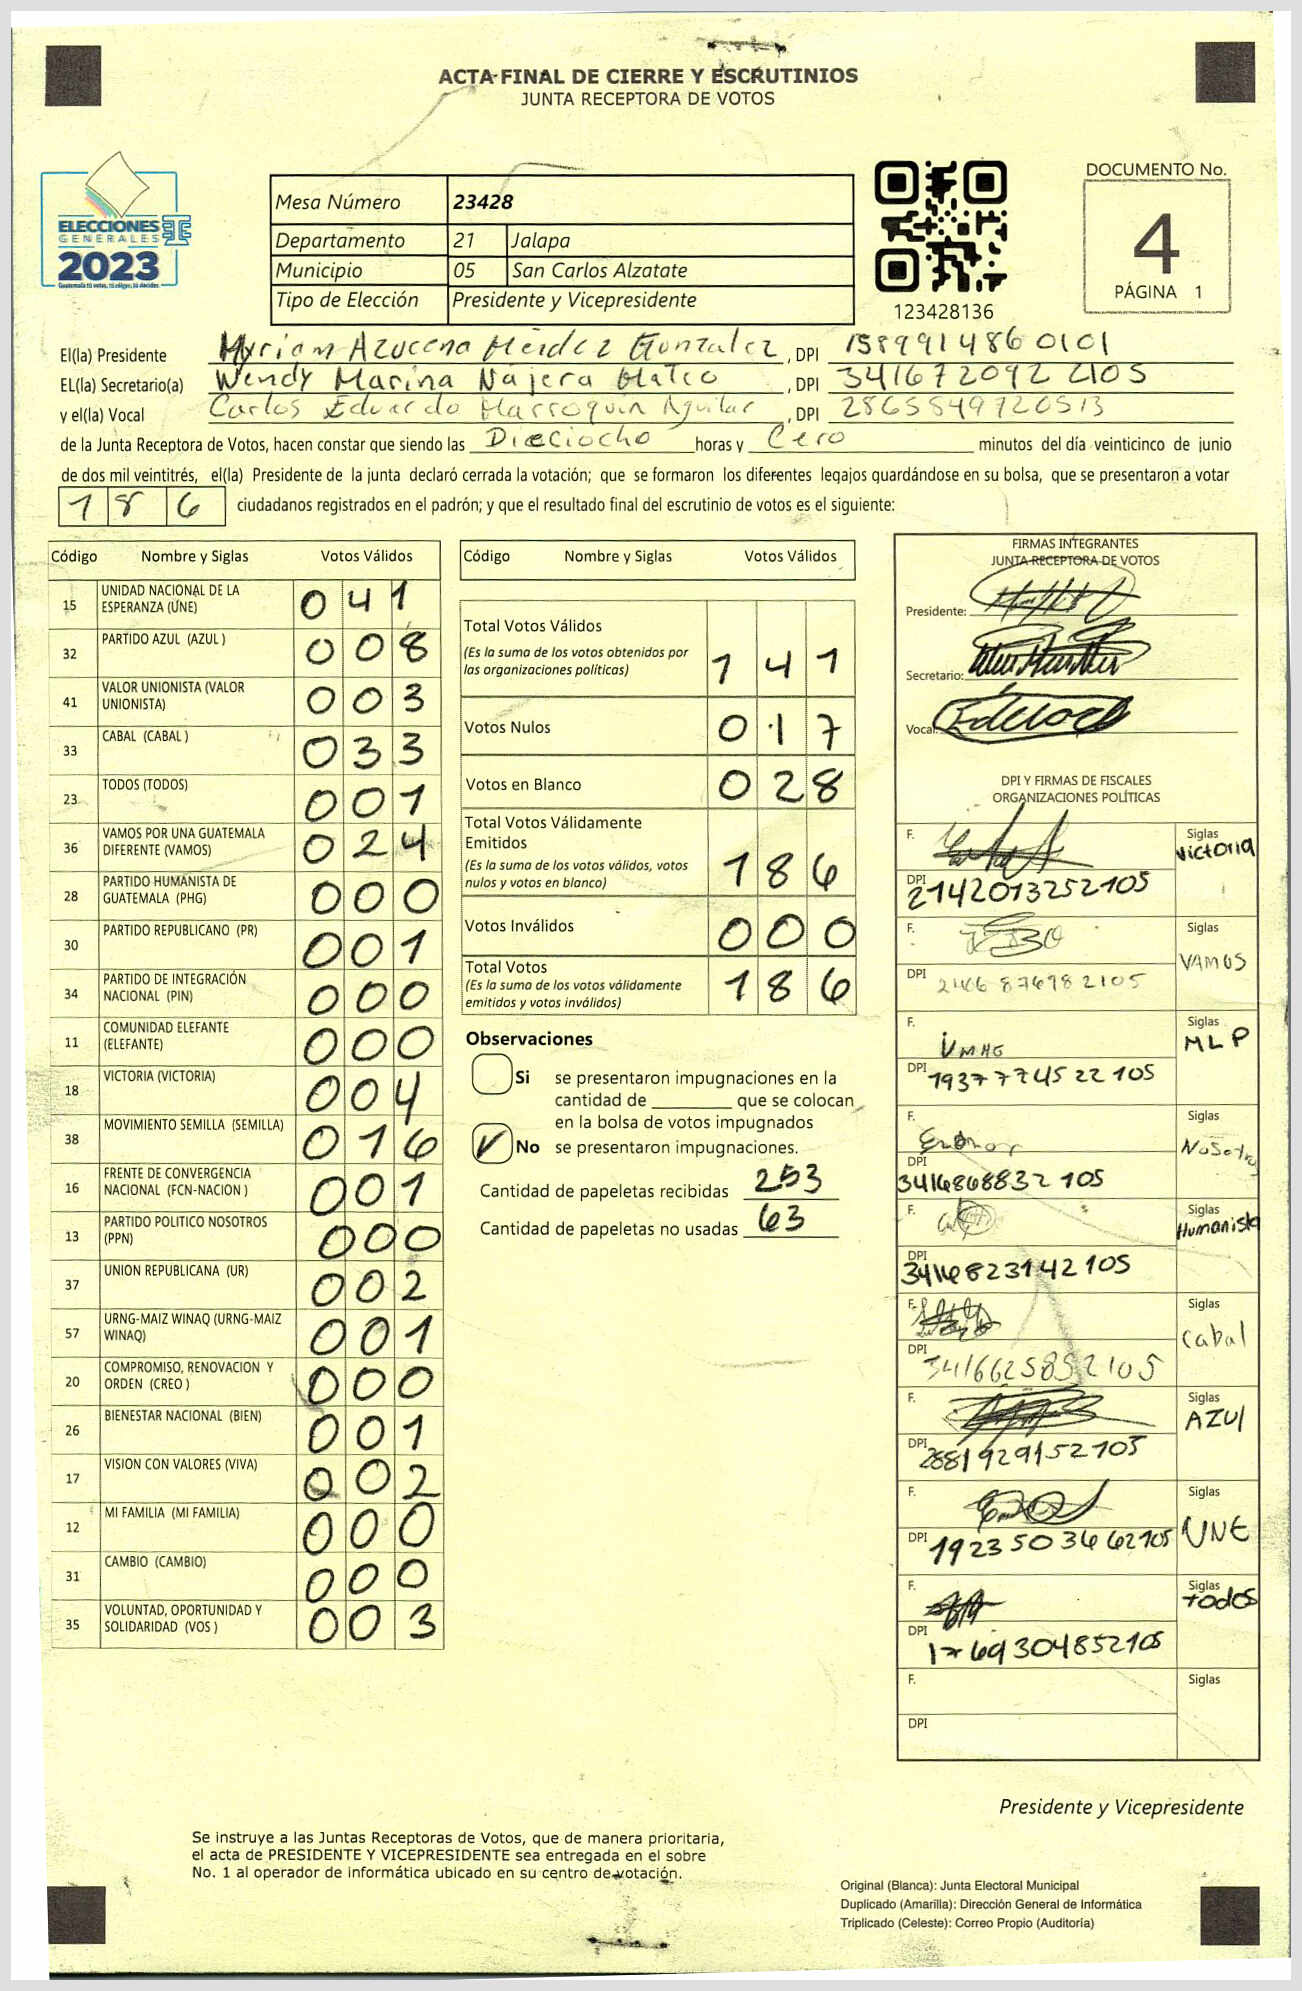 ACTA FINAL DE CIERRE Y ESCRUTINIOS
JUNTA RECEPTORA DE VOTOS
ELECCIONES
GENERALES
2023
Guatemala tú votas, tú eliges, tú decides
Mesa Número 23428
Departamento 21 Jalapa
Municipio 05 San Carlos Alzatate
Tipo de Elección Presidente y Vicepresidente
123428136
DOCUMENTO No.
4
PÁGINA 1
El(la) Presidente Myriam Azucena Méndez Gonzalez, DPI 1589914860101
EL(la) Secretario(a) Wendy Marina Nájera Mateo, DPI 3416720922105
y el(la) Vocal Carlos Eduardo Marroquín Aguilar, DPI 2865849720513
de la Junta Receptora de Votos, hacen constar que siendo las Dieciocho horas y Cero minutos del día veinticinco de junio
de dos mil veintitrés, el(la) Presidente de la junta declaró cerrada la votación; que se formaron los diferentes legajos guardándose en su bolsa, que se presentaron a votar
186 ciudadanos registrados en el padrón; y que el resultado final del escrutinio de votos es el siguiente:
Código Nombre y Siglas Votos Válidos
15 UNIDAD NACIONAL DE LA ESPERANZA (UNE) 041
32 PARTIDO AZUL (AZUL ) 008
41 VALOR UNIONISTA (VALOR UNIONISTA) 003
33 CABAL (CABAL ) 033
23 TODOS (TODOS) 001
36 VAMOS POR UNA GUATEMALA DIFERENTE (VAMOS) 024
28 PARTIDO HUMANISTA DE GUATEMALA (PHG) 000
30 PARTIDO REPUBLICANO (PR) 001
34 PARTIDO DE INTEGRACIÓN NACIONAL (PIN) 000
11 COMUNIDAD ELEFANTE (ELEFANTE) 000
18 VICTORIA (VICTORIA) 004
38 MOVIMIENTO SEMILLA (SEMILLA) 016
16 FRENTE DE CONVERGENCIA NACIONAL (FCN-NACION ) 001
13 PARTIDO POLITICO NOSOTROS (PPN) 000
37 UNION REPUBLICANA (UR) 002
57 URNG-MAIZ WINAQ (URNG-MAIZ WINAQ) 001
20 COMPROMISO, RENOVACION Y ORDEN (CREO ) 000
26 BIENESTAR NACIONAL (BIEN) 001
17 VISION CON VALORES (VIVA) 002
12 MI FAMILIA (MI FAMILIA) 000
31 CAMBIO (CAMBIO) 000
35 VOLUNTAD, OPORTUNIDAD Y SOLIDARIDAD (VOS ) 003
Código Nombre y Siglas Votos Válidos
Total Votos Válidos
(Es la suma de los votos obtenidos por
las organizaciones políticas) 141
Votos Nulos 017
Votos en Blanco 028
Total Votos Válidamente
Emitidos
(Es la suma de los votos válidos, votos
nulos y votos en blanco) 186
Votos Inválidos 000
Total Votos
(Es la suma de los votos válidamente
emitidos y votos inválidos) 186
Observaciones
Si se presentaron impugnaciones en la
cantidad de ________ que se colocan
en la bolsa de votos impugnados
No se presentaron impugnaciones.
Cantidad de papeletas recibidas 253
Cantidad de papeletas no usadas 63
FIRMAS INTEGRANTES
JUNTA RECEPTORA DE VOTOS
Presidente:
Secretario:
Vocal:
DPI Y FIRMAS DE FISCALES
ORGANIZACIONES POLÍTICAS
F. Siglas victoria
DPI 2142013252105
F. Siglas VAMOS
DPI 2146876982105
F. Siglas MLP
DPI 1937774522105
F. Siglas Nosotros
DPI 3416868832105
F. Siglas Humanista
DPI 3416823142105
F. Siglas Cabal
DPI 3416625852105
F. Siglas AZUl
DPI 2881929152105
F. Siglas UNE
DPI 1923503662105
F. Siglas todos
DPI 1769304852105
F. Siglas
DPI
Presidente y Vicepresidente
Se instruye a las Juntas Receptoras de Votos, que de manera prioritaria,
el acta de PRESIDENTE Y VICEPRESIDENTE sea entregada en el sobre
No. 1 al operador de informática ubicado en su centro de votación.
Original (Blanca): Junta Electoral Municipal
Duplicado (Amarilla): Dirección General de Informática
Triplicado (Celeste): Correo Propio (Auditoría)